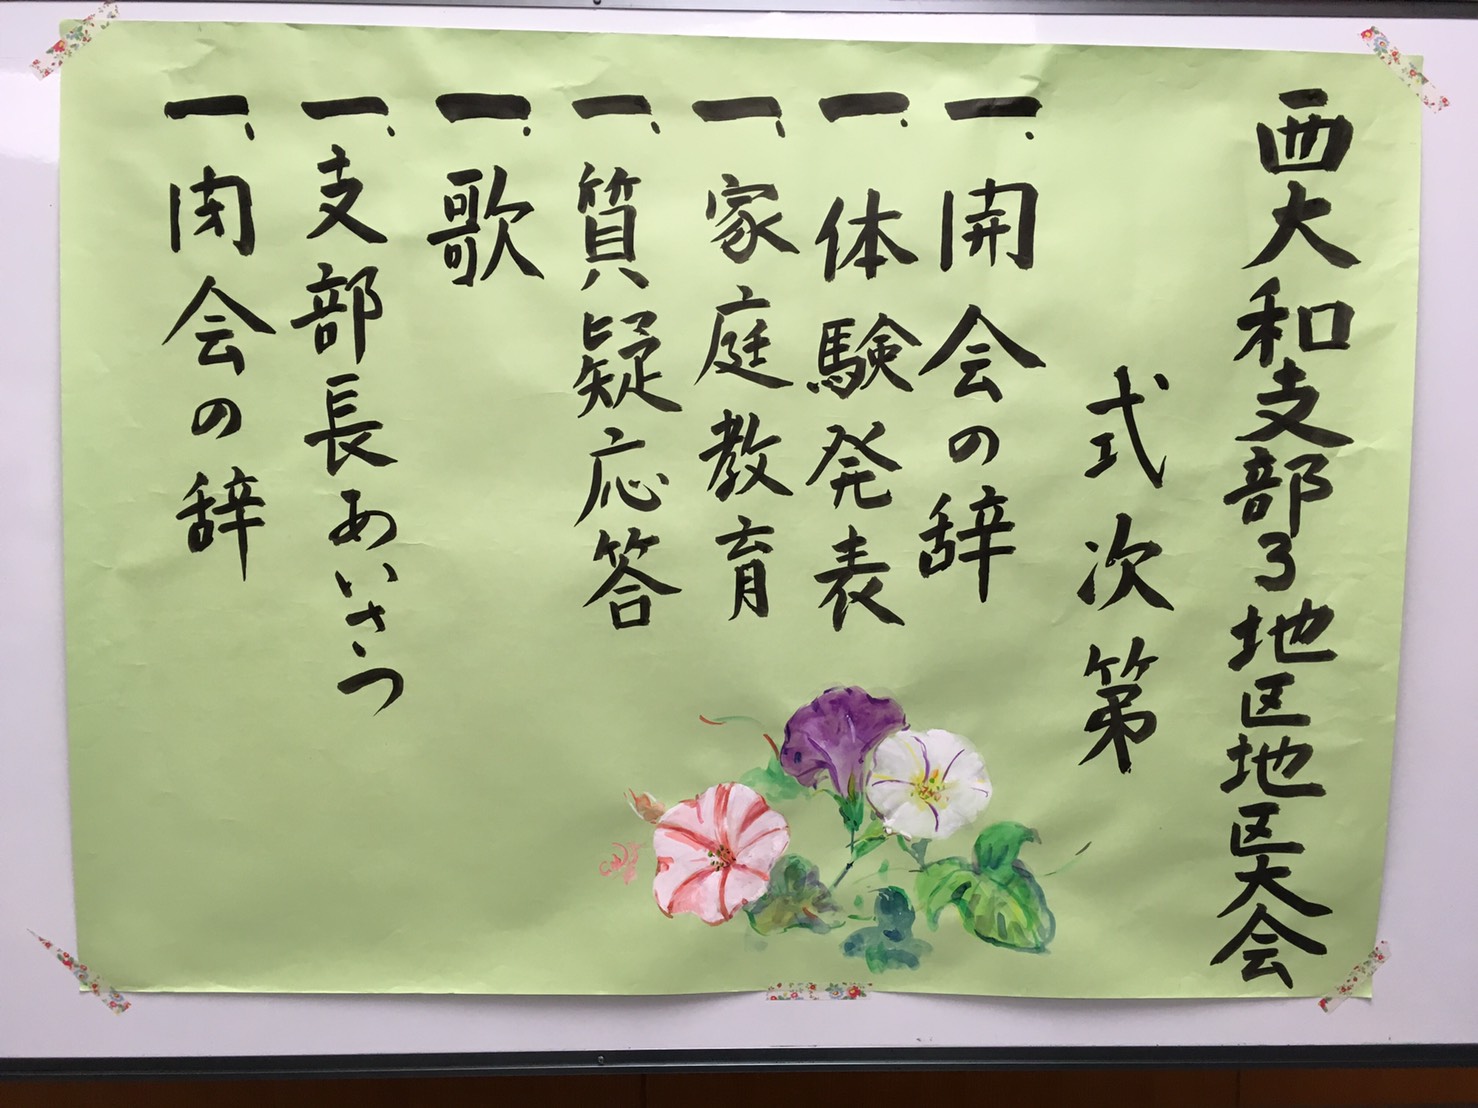 西大和支部3地区地区大会
式次第
一、開会の辞
一、体験発表
一、家庭教育
一、質疑応答
一、歌
一、支部長あいさつ
一、閉会の辞